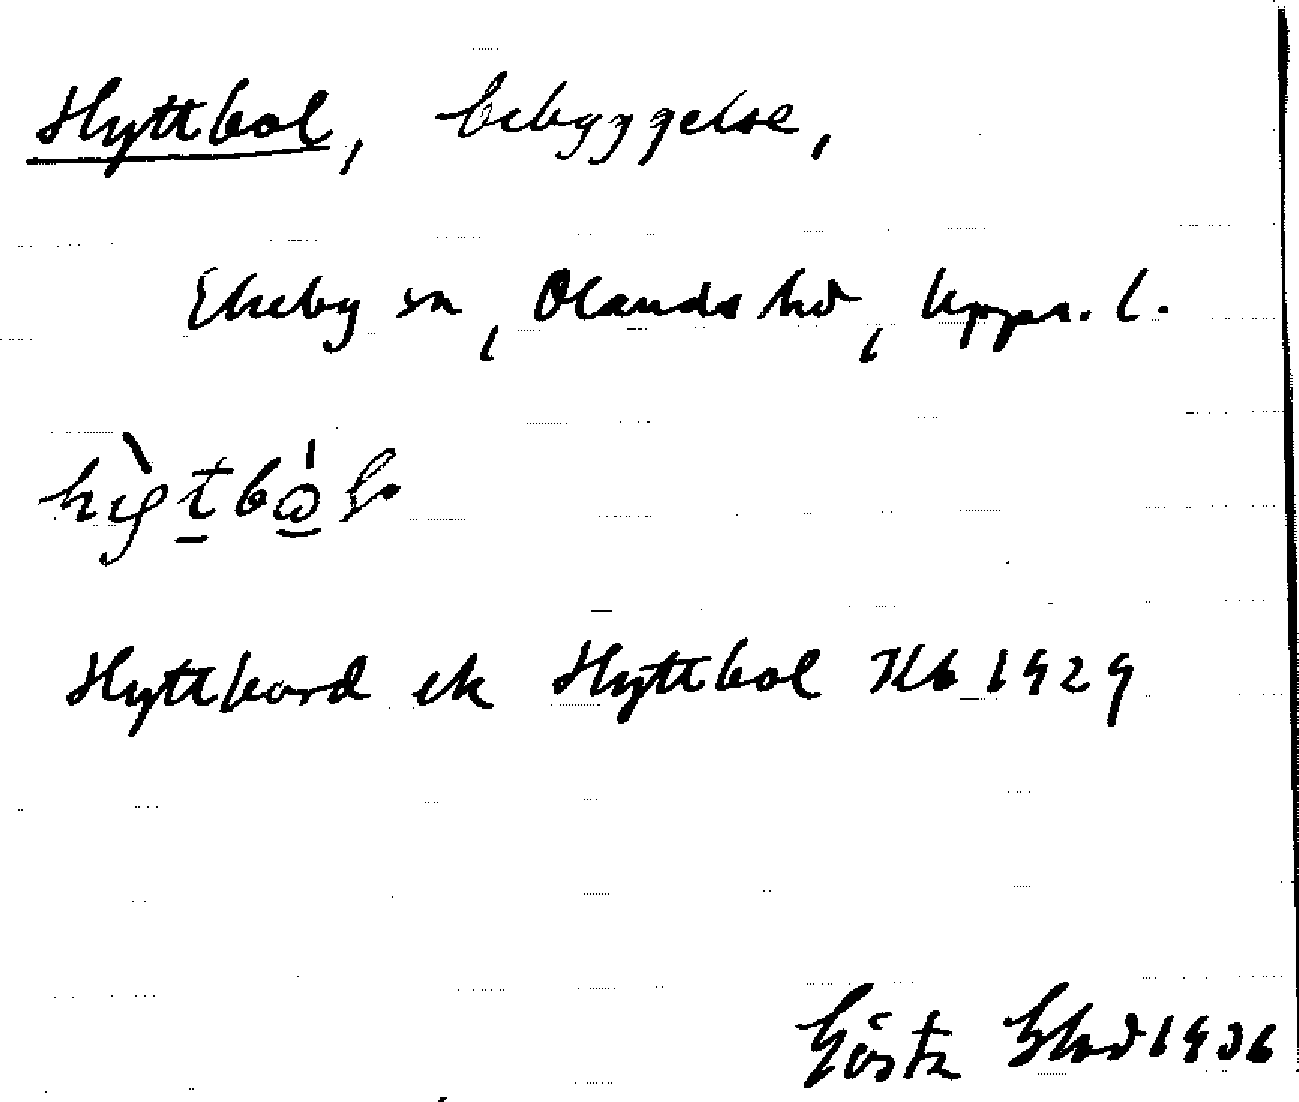 Hyttbol, bebyggelse,
Ekeby sn, Olands hd, Upps. l.
Hyttbord ek Hyttbol Kb 1929
Gösta 1936